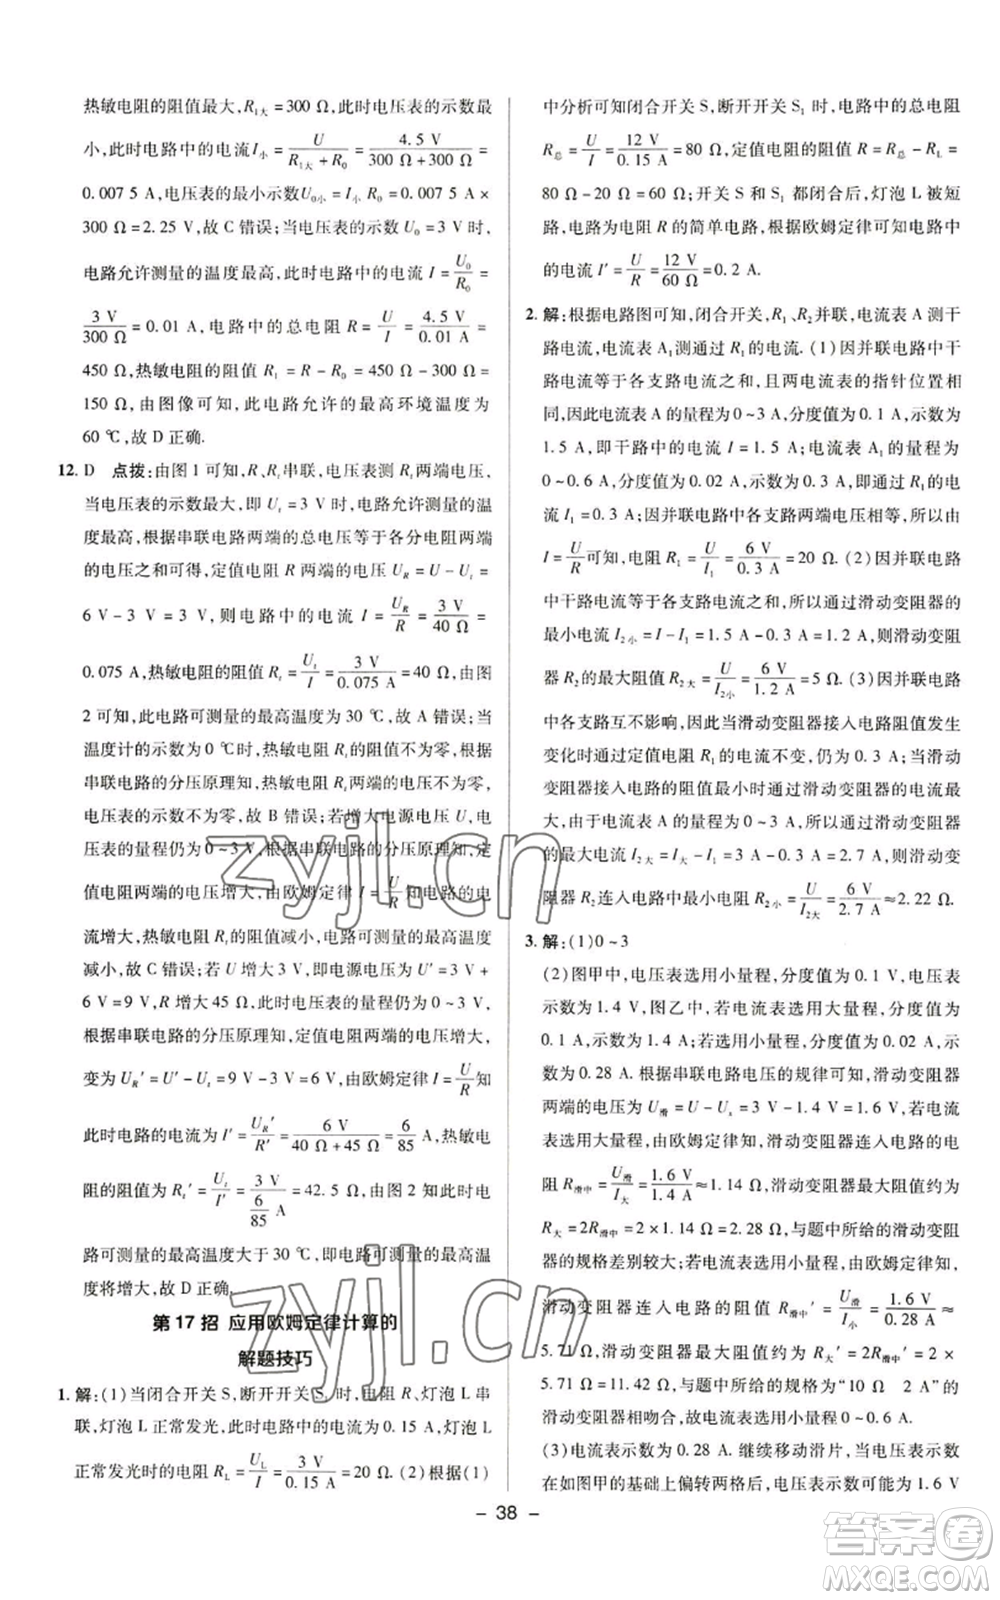 热敏电阻的阻值最大,R1大=300 Ω,此时电压表的示数最
小,此时电路中的电流I小=U/(R1大+R0)=4.5 V/(300 Ω+300 Ω)=
0.007 5 A,电压表的最小示数U0小=I小 R0=0.007 5 A×
300 Ω=2.25 V,故 C 错误;当电压表的示数 U0=3 V 时,
电路允许测量的温度最高,此时电路中的电流 I=U0/R0=
3 V/300 Ω=0.01 A,电路中的总电阻 R=U/I=4.5 V/0.01 A=
450 Ω,热敏电阻的阻值 R1=R-R0=450 Ω-300 Ω=
150 Ω,由图像可知,此电路允许的最高环境温度为
60 ℃,故 D 正确.
12. D 点拨:由图 1 可知,R、Rt串联,电压表测 Rt两端电压,
当电压表的示数最大,即 Ut=3 V 时,电路允许测量的温
度最高,根据串联电路两端的总电压等于各分电阻两端
的电压之和可得,定值电阻 R 两端的电压 UR=U-Ut=
6 V-3 V=3 V,则电路中的电流 I=UR/R=3 V/40 Ω=
0.075 A,热敏电阻的阻值 Rt=Ut/I=3 V/0.075 A=40 Ω,由图
2 可知,此电路可测量的最高温度为 30 ℃,故 A 错误;当
温度计的示数为 0 ℃时,热敏电阻 Rt的阻值不为零,根据
串联电路的分压原理知,热敏电阻 Rt两端的电压不为零,
电压表的示数不为零,故 B 错误;若增大电源电压 U,电
压表的量程仍为 0~3 V,根据串联电路的分压原理知,定
值电阻两端的电压增大,由欧姆定律 I=U/R知电路中的电
流增大,热敏电阻 Rt的阻值减小,电路可测量的最高温度
减小,故 C 错误;若 U 增大 3 V,即电源电压为 U′=3 V+
6 V=9 V,R 增大 45 Ω,电压表的量程仍为 0~3 V,
根据串联电路的分压原理知,定值电阻两端的电压增大,
变为 UR′=U′-Ut=9 V-3 V=6 V,由欧姆定律 I=U/R知
此时电路的电流为 I′=UR′/R′=6 V/(40 Ω+45 Ω)=6/85 A,热敏电
阻的阻值为 Rt′=Ut/I′=3 V/(6/85 A)=42.5 Ω,由图 2 知此时电
路可测量的最高温度大于 30 ℃,即电路可测量的最高温
度将增大,故 D 正确.
第 17 招 应用欧姆定律计算的
解题技巧
1. 解:(1)当闭合开关 S,断开开关 S1时,电阻 R、灯泡 L 串
联,灯泡 L 正常发光,此时电路中的电流为 0.15 A,灯泡 L
正常发光时的电阻 RL=UL/I=3 V/0.15 A=20 Ω. (2)根据(1)
中分析可知闭合开关 S,断开开关 S1 时,电路中的总电阻
R总=U/I=12 V/0.15 A=80 Ω,定值电阻的阻值 R=R总-RL=
80 Ω-20 Ω=60 Ω;开关 S 和 S1 都闭合后,灯泡 L 被短
路,电路为电阻 R 的简单电路,根据欧姆定律可知电路中
的电流 I′=U/R=12 V/60 Ω=0.2 A.
2. 解:根据电路图可知,闭合开关,R1、R2并联,电流表 A 测干
路电流,电流表 A1测通过 R1的电流. (1)因并联电路中干
路电流等于各支路电流之和,且两电流表的指针位置相
同,因此电流表 A 的量程为 0~3 A,分度值为 0.1 A,示数为
1.5 A,即干路中的电流 I=1.5 A;电流表 A1的量程为
0~0.6 A,分度值为 0.02 A,示数为 0.3 A,即通过 R1的电
流 I1=0.3 A;因并联电路中各支路两端电压相等,所以由
I=U/R可知,电阻 R1=U/I1=6 V/0.3 A=20 Ω. (2)因并联电路
中干路电流等于各支路电流之和,所以通过滑动变阻器的
最小电流 I2小=I-I1=1.5 A-0.3 A=1.2 A,则滑动变阻
器 R2的最大阻值 R2大=U/I2小=6 V/1.2 A=5 Ω. 因并联电路
中各支路互不影响,因此当滑动变阻器接入电路阻值发生
变化时通过定值电阻 R1的电流不变,仍为 0.3 A;当滑动
变阻器接入电路的阻值最小时通过滑动变阻器的电流最
大,由于电流表 A 的量程为 0~3 A,所以通过滑动变阻器
的最大电流 I2大=I大-I1=3 A-0.3 A=2.7 A,则滑动变
阻器 R2连入电路中最小电阻 R2小=U/I2大=6 V/2.7 A≈2.22 Ω.
3. 解:(1)0~3
(2)图甲中,电压表选用小量程,分度值为 0.1 V,电压表
示数为 1.4 V,图乙中,若电流表选用大量程,分度值为
0.1 A,示数为 1.4 A;若选用小量程,分度值为 0.02 A,示
数为 0.28 A. 根据串联电路电压的规律可知,滑动变阻器
两端的电压为 U滑=U-Ux=3 V-1.4 V=1.6 V,若电流
表选用大量程,由欧姆定律知,滑动变阻器连入电路的电
阻 R滑中=U滑/I大=1.6 V/1.4 A≈1.14 Ω,滑动变阻器最大阻值约为
R大=2R滑中=2×1.14 Ω=2.28 Ω,与题中所给的滑动变阻
器的规格差别较大;若电流表选用小量程,由欧姆定律知,
滑动变阻器连入电路的阻值 R滑中′=U滑/I小=1.6 V/0.28 A≈
5.71 Ω,滑动变阻器的最大阻值约为 R大′=2R滑中′=2×
5.71 Ω=11.42 Ω,与题中所给的规格为“10 Ω 2 A”的
滑动变阻器相吻合,故电流表选择的量程为 0~0.6 A.
(3)电流表示数为 0.28 A. 继续移动滑片,当电压表示数
在如图甲的基础上偏转两格后,电压表示数可能为 1.6 V
- 38 -
zyjl.cn
zyjl.cn
答案圈
MXQE.COM